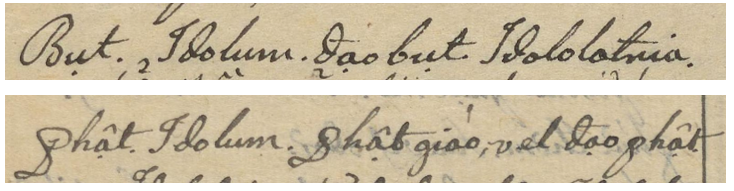 Bụt. Idolum. đạo bụt Idololatria.
Phật. Idolum. Phật giáo, vel đạo phật